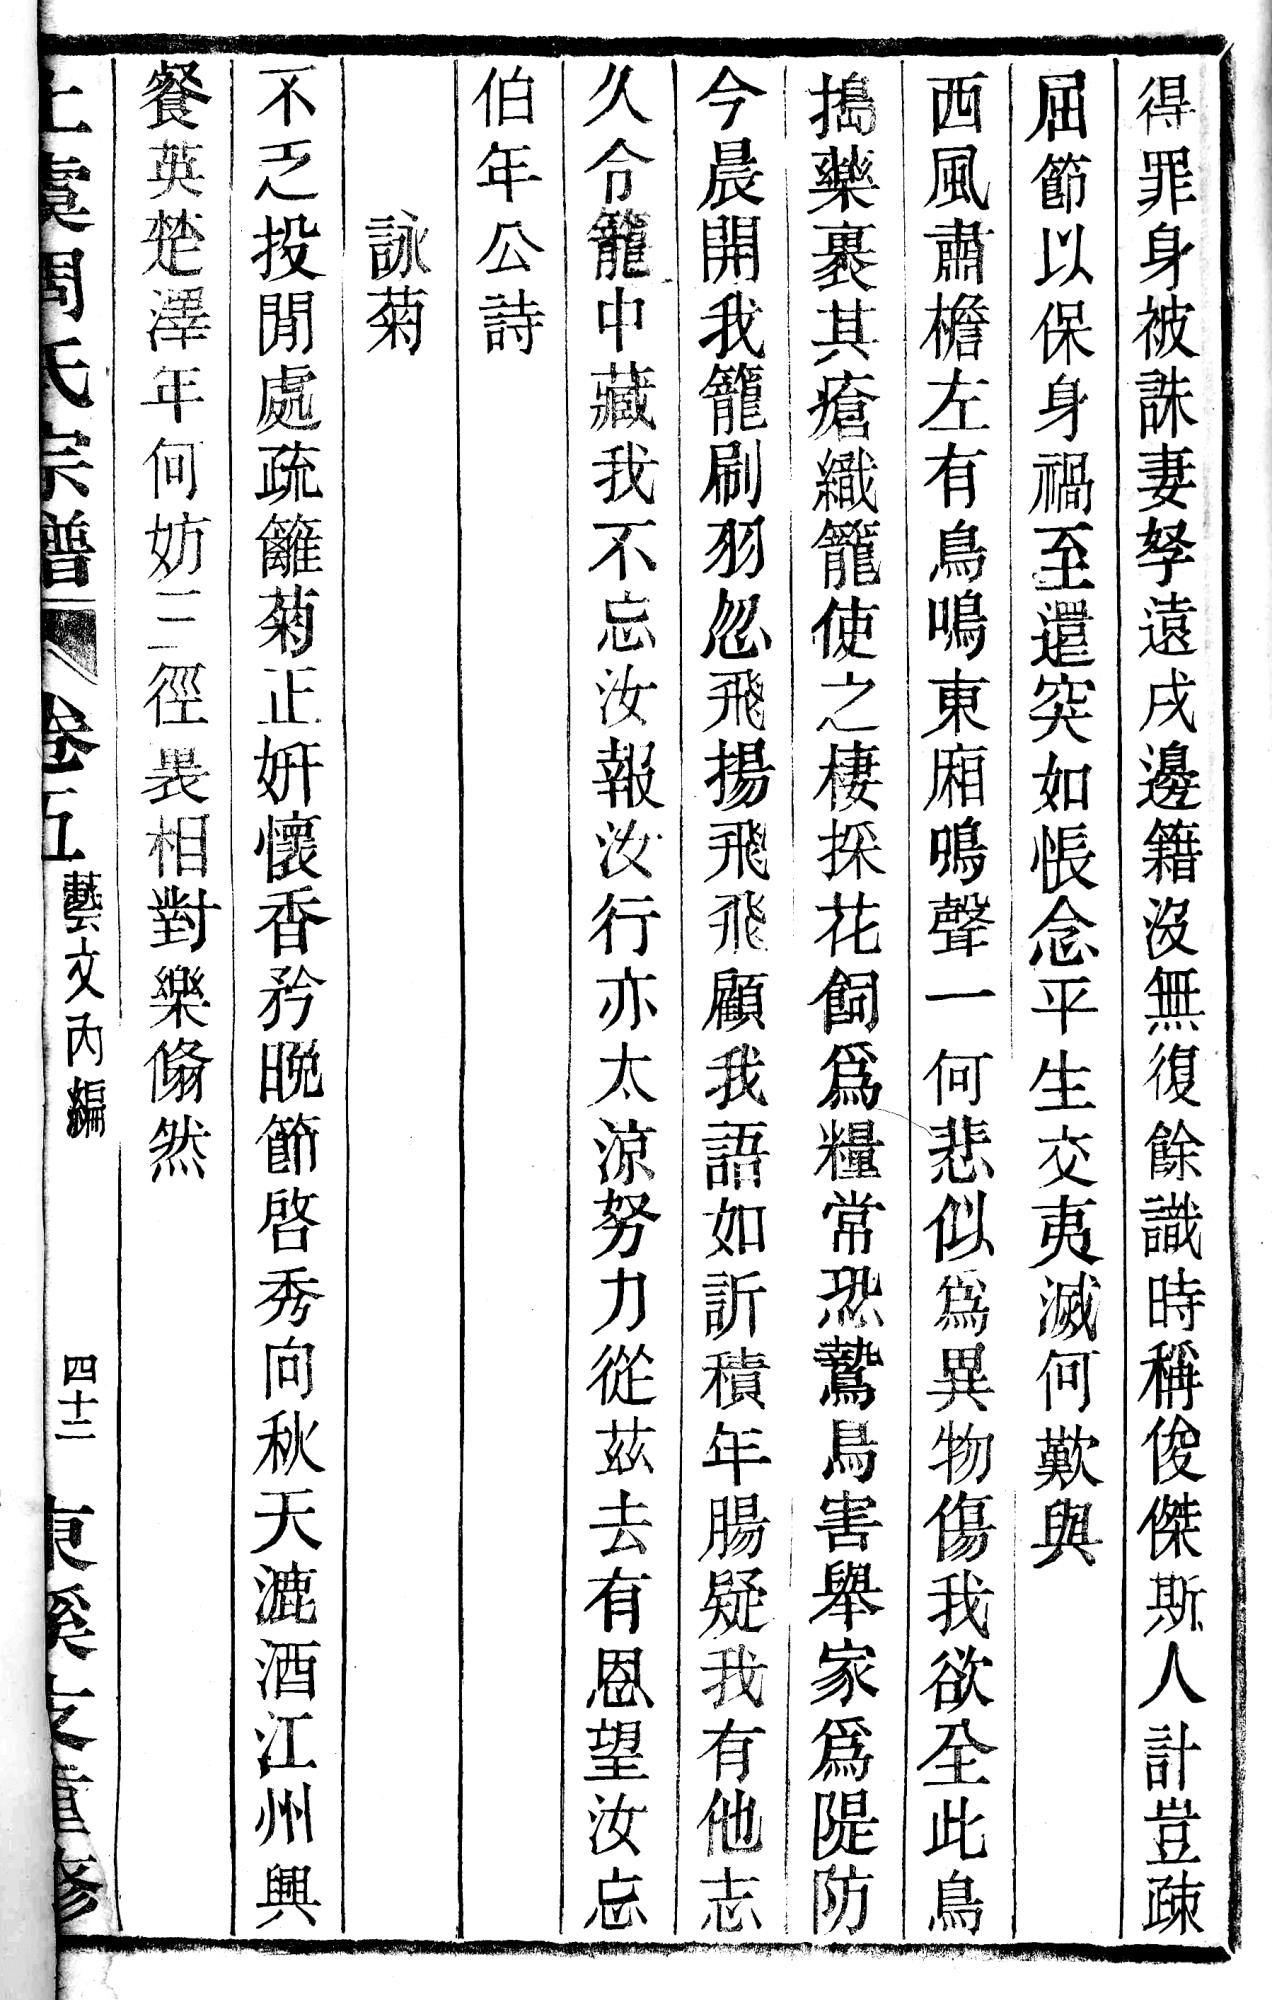 得罪身被誅妻孥遠戍邊籍沒無復餘識時稱俊傑斯人計豈疎
屈節以保身禍至還突如悵念平生交夷滅何歎與
西風肅檐左有鳥鳴東廂鳴聲一何悲似爲異物傷我欲全此鳥
搗藥裹其瘡織籠使之棲採花飼爲糧常恐鷙鳥害舉家爲隄防
今晨開我籠刷羽忽飛揚飛飛顧我語如訢積年腸疑我有他志
久令籠中藏我不忘汝報汝行亦太涼努力從茲去有恩望汝忘
伯年公詩
詠菊
不乏投閒處疏籬菊正妍懷香矜晚節啓秀向秋天漉酒江州興
餐英楚澤年何妨三徑畏相對樂翛然
上虞周氏宗譜 卷五 藝文丙編 四十二 東溪支重修